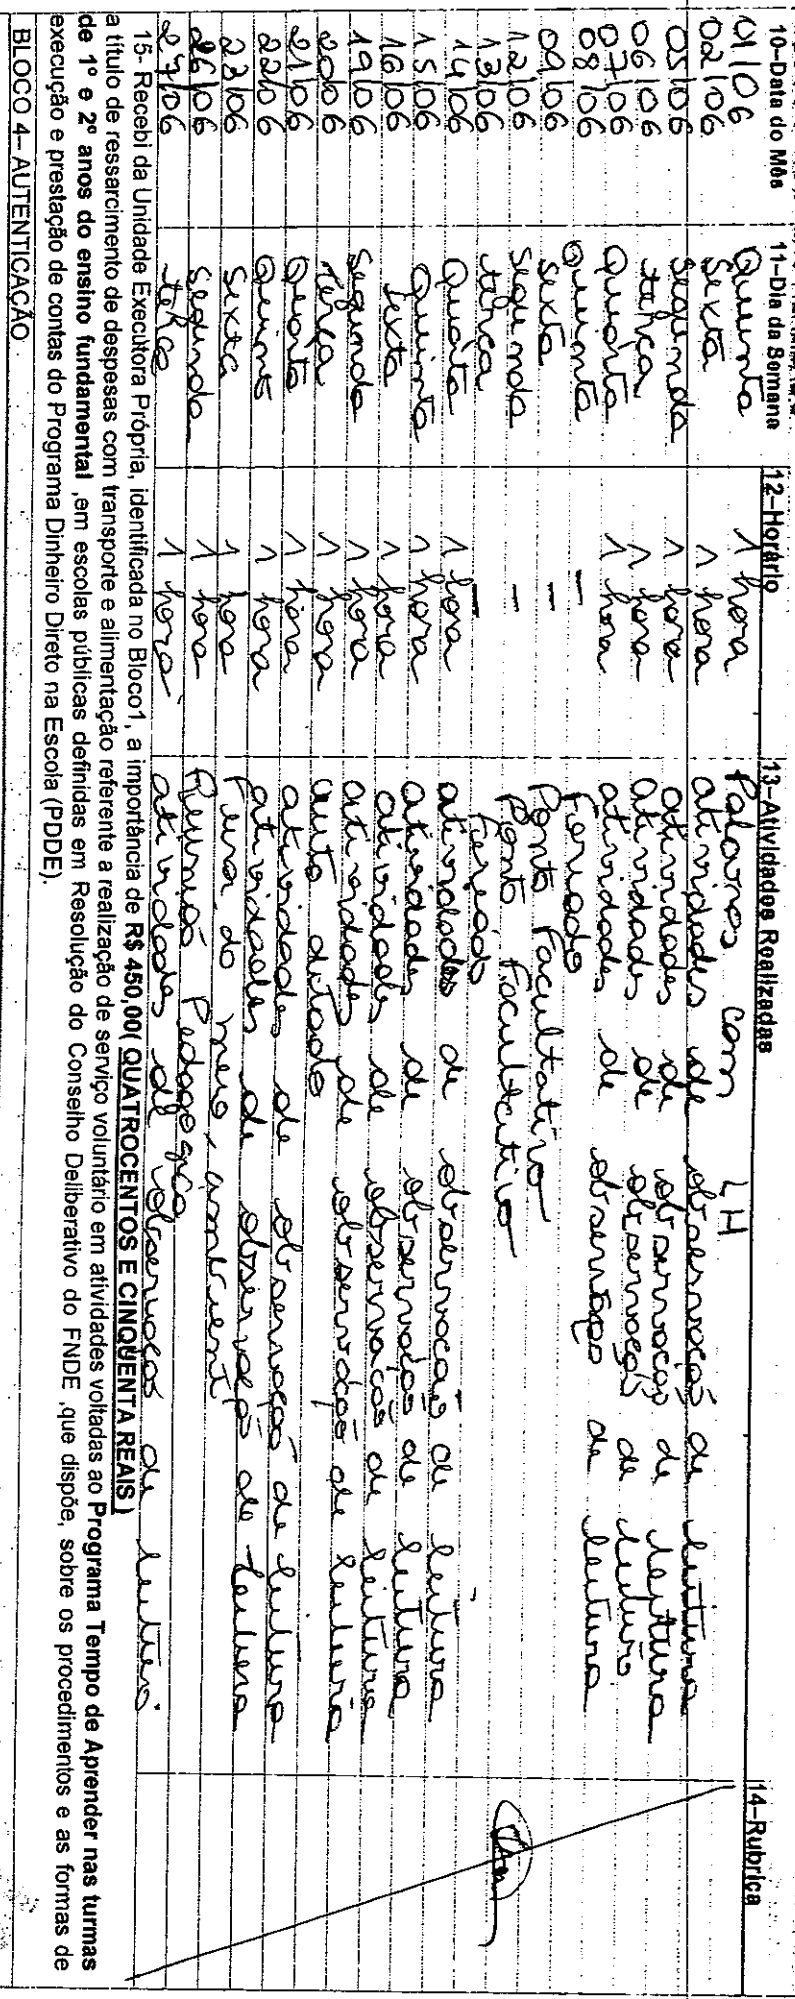 10–Data do Mês 11–Dia da Semana 12–Horário 13–Atividades Realizadas 14–Rubrica
01/06 Quinta 1 hora Palavras com LH
02/06 Sexta 1 hora atividades de observação de leitura
05/06 Segunda 1 hora atividades de observação de leitura
06/06 terça 1 hora atividades de observação de leitura
07/06 Quarta 1 hora atividades de observação de leitura
08/06 Quinta – Feriado
09/06 Sexta – Ponto Facultativo
12/06 Segunda – Ponto Facultativo
13/06 terça – Feriado
14/06 Quarta 1 hora atividades de observação de leitura
15/06 Quinta 1 hora atividades de observação de leitura
16/06 Sexta 1 hora atividades de observação de leitura
19/06 Segunda 1 hora atividades de observação de leitura
20/06 terça 1 hora auto ditado
21/06 Quarta 1 hora atividades de observação de leitura
22/06 Quinta 1 hora atividades de observação de leitura
23/06 Sexta 1 hora Feira do meio, ambiente
26/06 Segunda 1 hora Reunião Pedagogica
27/06 terça 1 hora atividades de observação de leitura
15- Recebi da Unidade Executora Própria, identificada no Bloco1, a importância de R$ 450,00( QUATROCENTOS E CINQUENTA REAIS )
a título de ressarcimento de despesas com transporte e alimentação referente a realização de serviço voluntário em atividades voltadas ao Programa Tempo de Aprender nas turmas
de 1º e 2º anos do ensino fundamental ,em escolas públicas definidas em Resolução do Conselho Deliberativo do FNDE ,que dispõe, sobre os procedimentos e as formas de
execução e prestação de contas do Programa Dinheiro Direto na Escola (PDDE).
BLOCO 4– AUTENTICAÇÃO